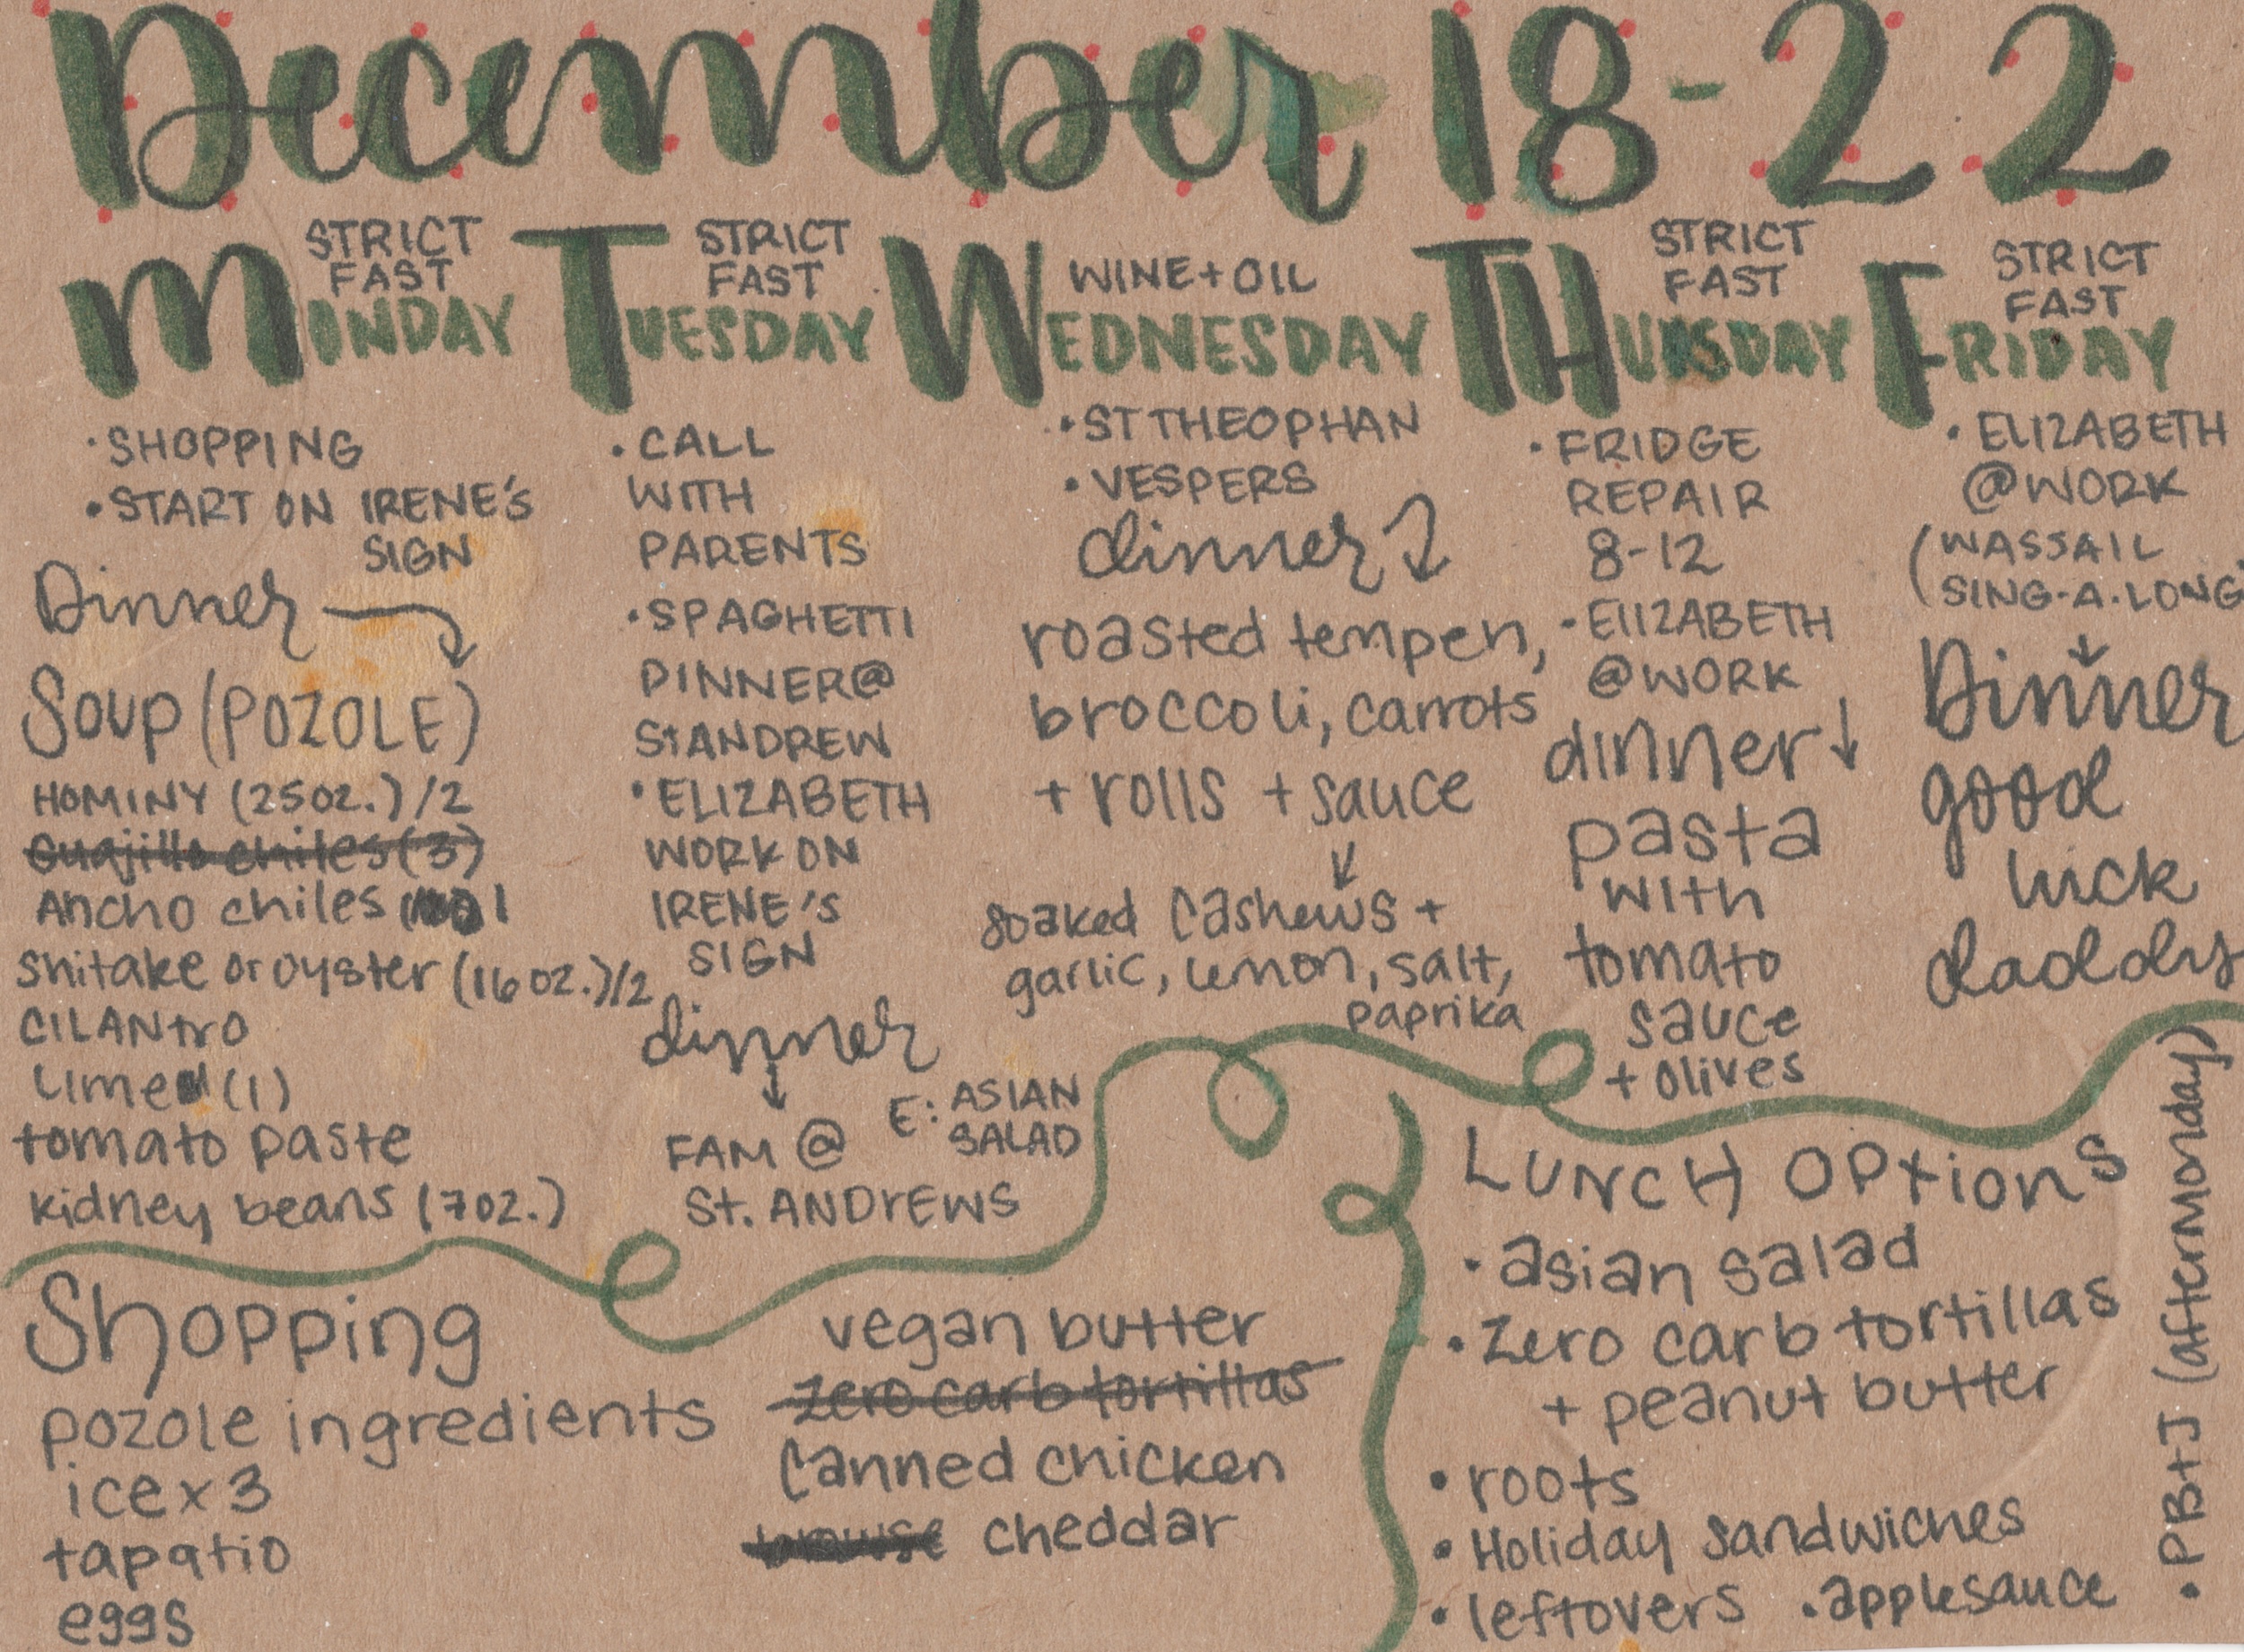 December 18-22
STRICT
FAST
MONDAY
• SHOPPING
• START ON IRENE'S
SIGN
Dinner
Soup (POZOLE)
HOMINY (25OZ.)/2
Guajillo chiles (3)
Ancho chiles 1
Shitake or oyster (16 OZ.)/2
CILANtrO
Lime (1)
tomato paste
kidney beans (7OZ.)
STRICT
FAST
TUESDAY
• CALL
WITH
PARENTS
• SPAGHETTI
DINNER @
St ANDREW
• ELIZABETH
WORK ON
IRENE'S
SIGN
dinner
FAM @
St. ANDrEWS
E: ASIAN
SALAD
WINE + OIL
WEDNESDAY
• ST THEOPHAN
• VESPERS
dinner
roasted tempeh,
broccoli, carrots
+ rolls + sauce
soaked cashews +
garlic, lemon, salt,
paprika
STRICT
FAST
THURSDAY
• FRIDGE
REPAIR
8-12
• ElIZABETH
@WORK
dinner
pasta
with
tomato
sauce
+ olives
STRICT
FAST
FRIDAY
• ELIZABETH
@WORK
(WASSAIL
SING-A-LONG
Dinner
good
luck
daddy
Shopping
pozole ingredients
ice x 3
tapatio
eggs
vegan butter
zero carb tortillas
canned chicken
cheddar
LUNCH OPtionS
• asian salad
• zero carb tortillas
+ peanut butter
• roots
• Holiday sandwiches
• leftovers • applesauce
• PB+J (after Monday)